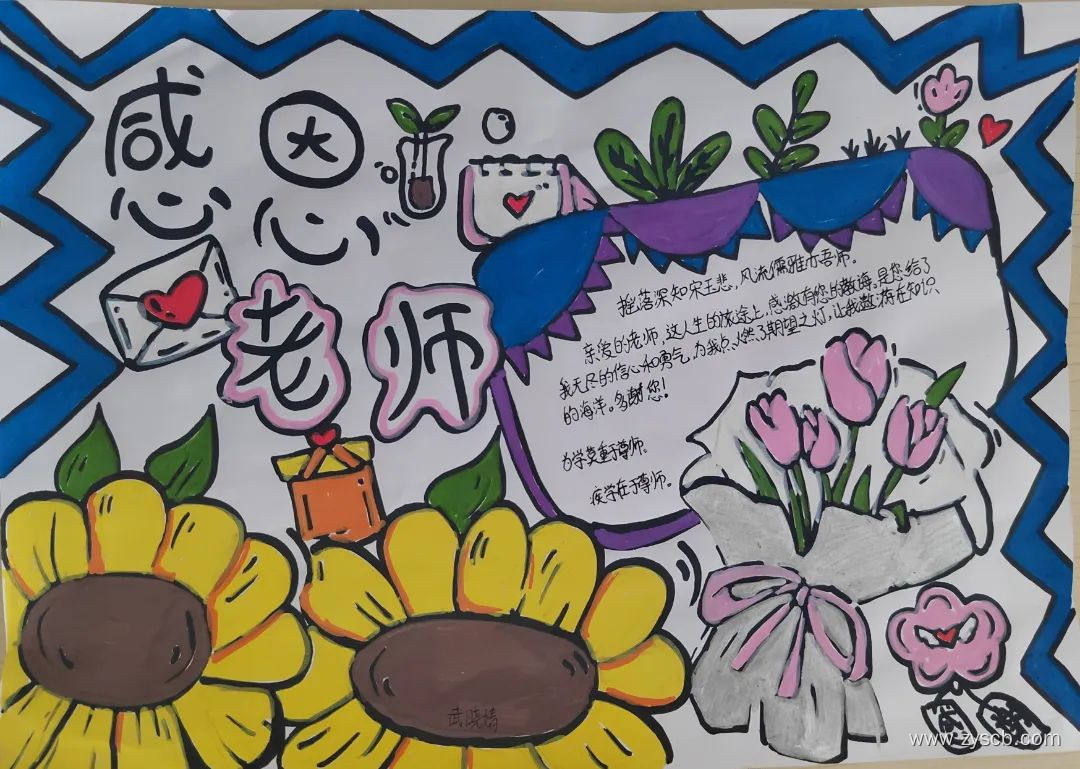 感恩
老师
摇落深知宋玉悲，风流儒雅亦吾师。
亲爱的老师，这人生的旅途上，感激有您的教海。是您给了
我无尽的信心和勇气，为我点燃了期望之灯，让我遨游在知识
的海洋。多谢您！
为学莫重于尊师。
疾学在于尊师。
武晓婧
www.zyscb.com